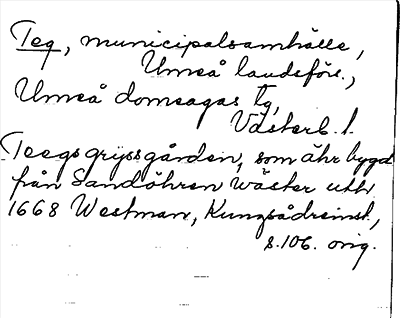 Teg, municipalsamhälle,
Umeå landsförs.,
Umeå domsagas tg,
Västerb. l.
Teegsgryssgården, som ähr bygd
från Sandöhren wäster uthi
1668 Westman, Kungsådreinst.,
s.106. orig.